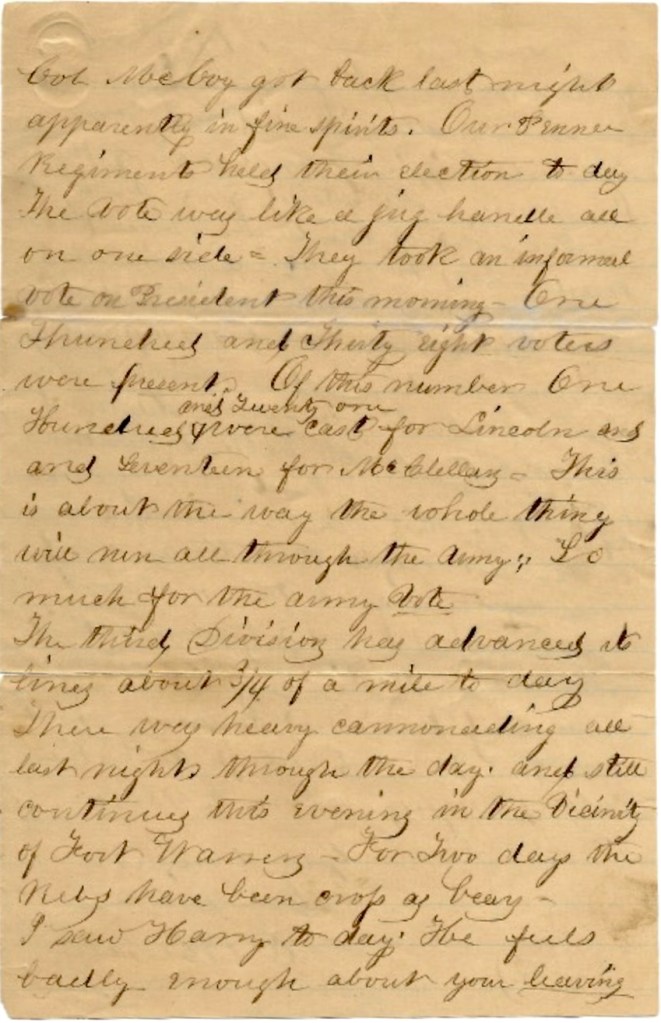 Col McCoy got back last night
apparently in fine spirits. Our Penna
Regiments held their election to day
The vote was like a jug handle all
on one side = They took an informal
vote on President this morning - One
Hundred and Thirty eight voters
were present. Of this number One
and Twenty one
Hundred were cast for Lincoln and
and Seventeen for McClellan = This
is about the way the whole thing
will run all through the army; So
much for the army vote
The third Division has advanced its
lines about 3/4 of a mile to day
There was heavy cannonading all
last night through the day. and still
continues this evening in the Vicinity
of Fort Warren - For Two days the
Rebs have been cross as bears -
I saw Harry to day. He feels
badly enough about your leaving